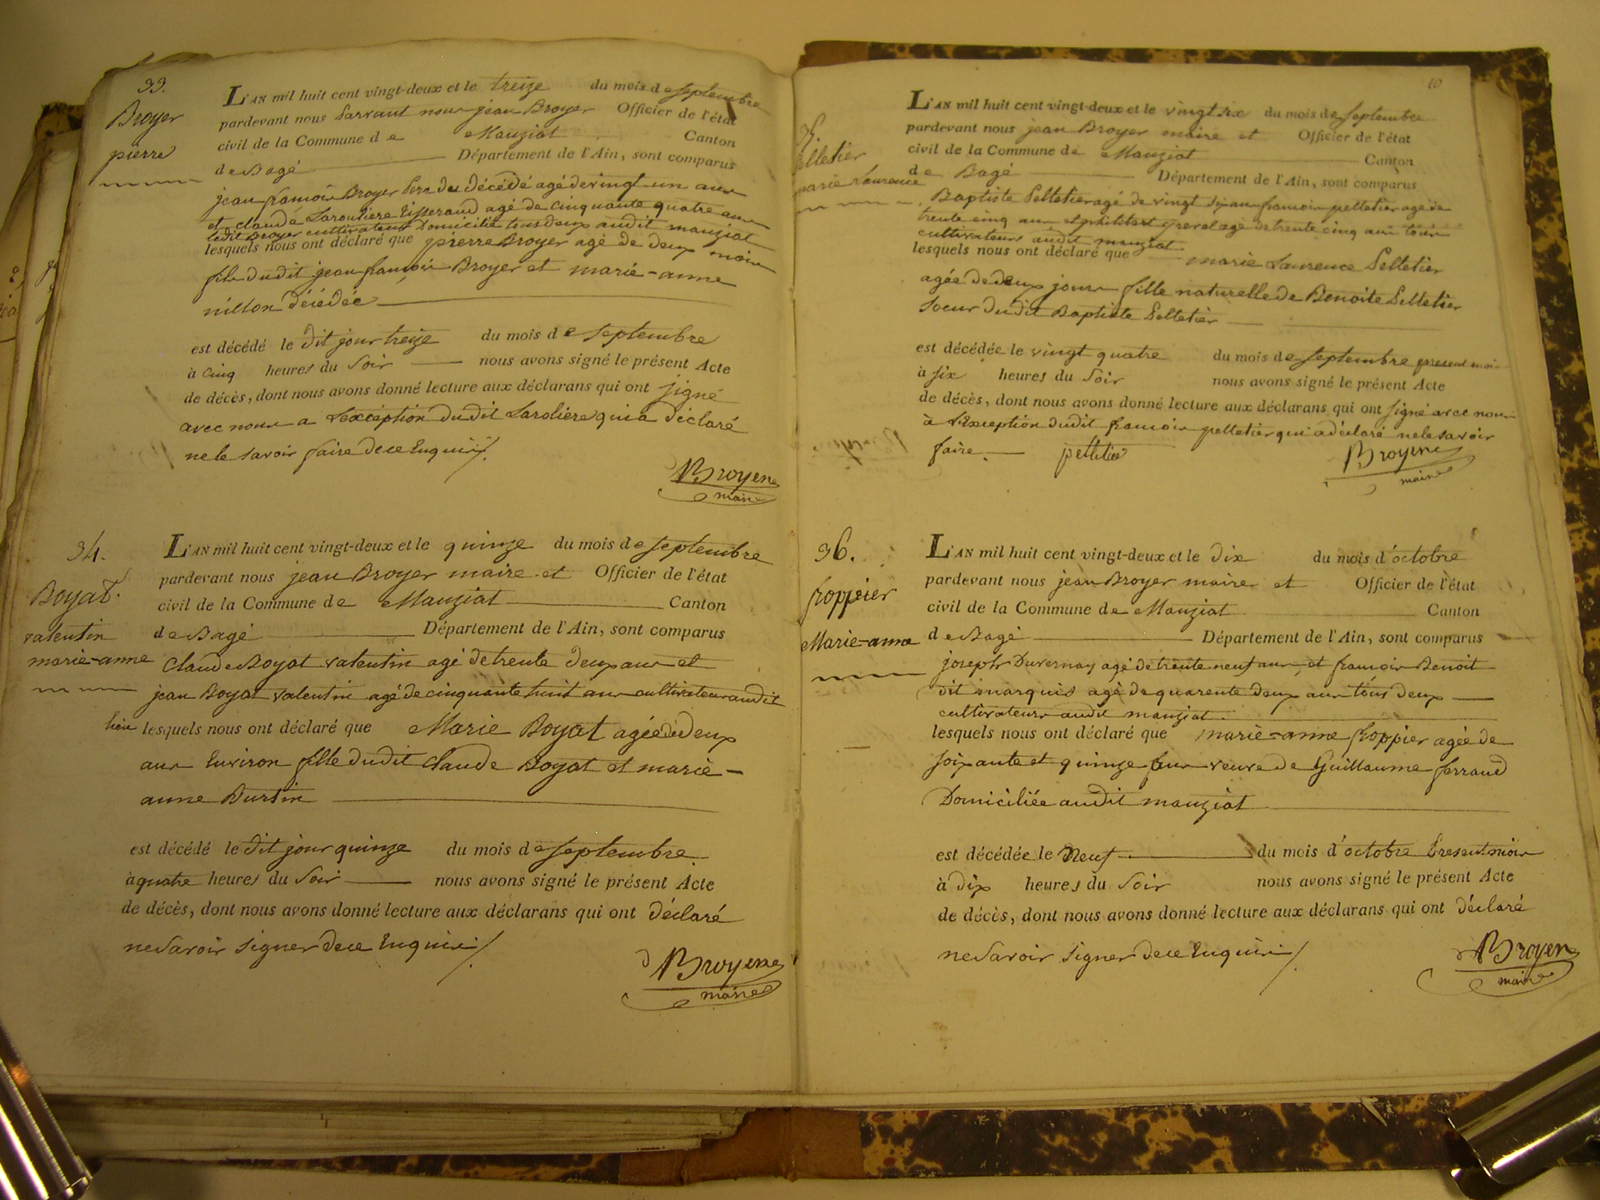 33.
Broyer
pierre
L'AN mil huit cent vingt-deux et le treize du mois de septembre
pardevant nous jean Broyer Officier de l'état
civil de la Commune de Manziat Canton
de Bagé Département de l'Ain, sont comparus
jean françois Broyer père du décédé agé de vingt un ans
et claude Laroliere Tisserand agé de cinquante quatre ans
ledit Broyer cultivateur Domiciliés tous deux audit manziat
lesquels nous ont déclaré que pierre Broyer agé de deux mois
fils dudit jean françois Broyer et marie-anne
nillon décédée
est décédé le dit jour treize du mois de septembre
à cinq heures du soir nous avons signé le présent Acte
de décès, dont nous avons donné lecture aux déclarans qui ont signé
avec nous a L'exception dudit Laroliere qui a déclaré
ne le savoir faire de ce Enquis /.
Broyer
maire
34.
Boyat.
valentin
marie-anne
L'AN mil huit cent vingt-deux et le quinze du mois de septembre
pardevant nous jean Broyer maire et Officier de l'état
civil de la Commune de Manziat Canton
de Bagé Département de l'Ain, sont comparus
Claude Boyat valentin agé de trente deux ans et
jean Boyat valentin agé de cinquante huit ans cultivateurs audit
lieu lesquels nous ont déclaré que Marie Boyat agée de deux
ans Environ fille dudit claude Boyat et marie-
anne Burtin
est décédé le dit jour quinze du mois de septembre
à quatre heures du soir nous avons signé le présent Acte
de décès, dont nous avons donné lecture aux déclarans qui ont déclaré
ne savoir signer de ce Enquis /.
Broyer
maire
10
pelletier
marie Laurence
L'AN mil huit cent vingt-deux et le vingt six du mois de septembre
pardevant nous jean Broyer maire et Officier de l'état
civil de la Commune de Manziat Canton
de Bagé Département de l'Ain, sont comparus
Baptiste Pelletier agé de vingt françois pelletier agé de
trente cinq ans et agé de trente cinq ans tous
cultivateurs audit manziat
lesquels nous ont déclaré que marie Laurence Pelletier
agée de deux jours fille naturelle de Benoite Pelletier
soeur dudit Baptiste Pelletier
est décédée le vingt quatre du mois de septembre present mois
à six heures du soir nous avons signé le présent Acte
de décès, dont nous avons donné lecture aux déclarans qui ont signé avec nous
à L'exception dudit françois pelletier qui a déclaré ne le savoir
faire. pelletier
Broyer
maire
36.
froppier
Marie-anne
L'AN mil huit cent vingt-deux et le dix du mois d'octobre
pardevant nous jean Broyer maire et Officier de l'état
civil de la Commune de Manziat Canton
de Bagé Département de l'Ain, sont comparus
joseph Duvernay agé de trente neuf ans, et françois Benoit
dit marquis agé de quarente deux ans tous deux
cultivateurs audit manziat.
lesquels nous ont déclaré que marie-anne froppier agée de
soixante et quinze ans veuve de Guillaume ferraud
Domiciliée audit manziat
est décédée le neuf du mois d'octobre Present mois
à dix heures du soir nous avons signé le présent Acte
de décès, dont nous avons donné lecture aux déclarans qui ont déclaré
ne savoir signer de ce Enquis /.
Broyer
maire